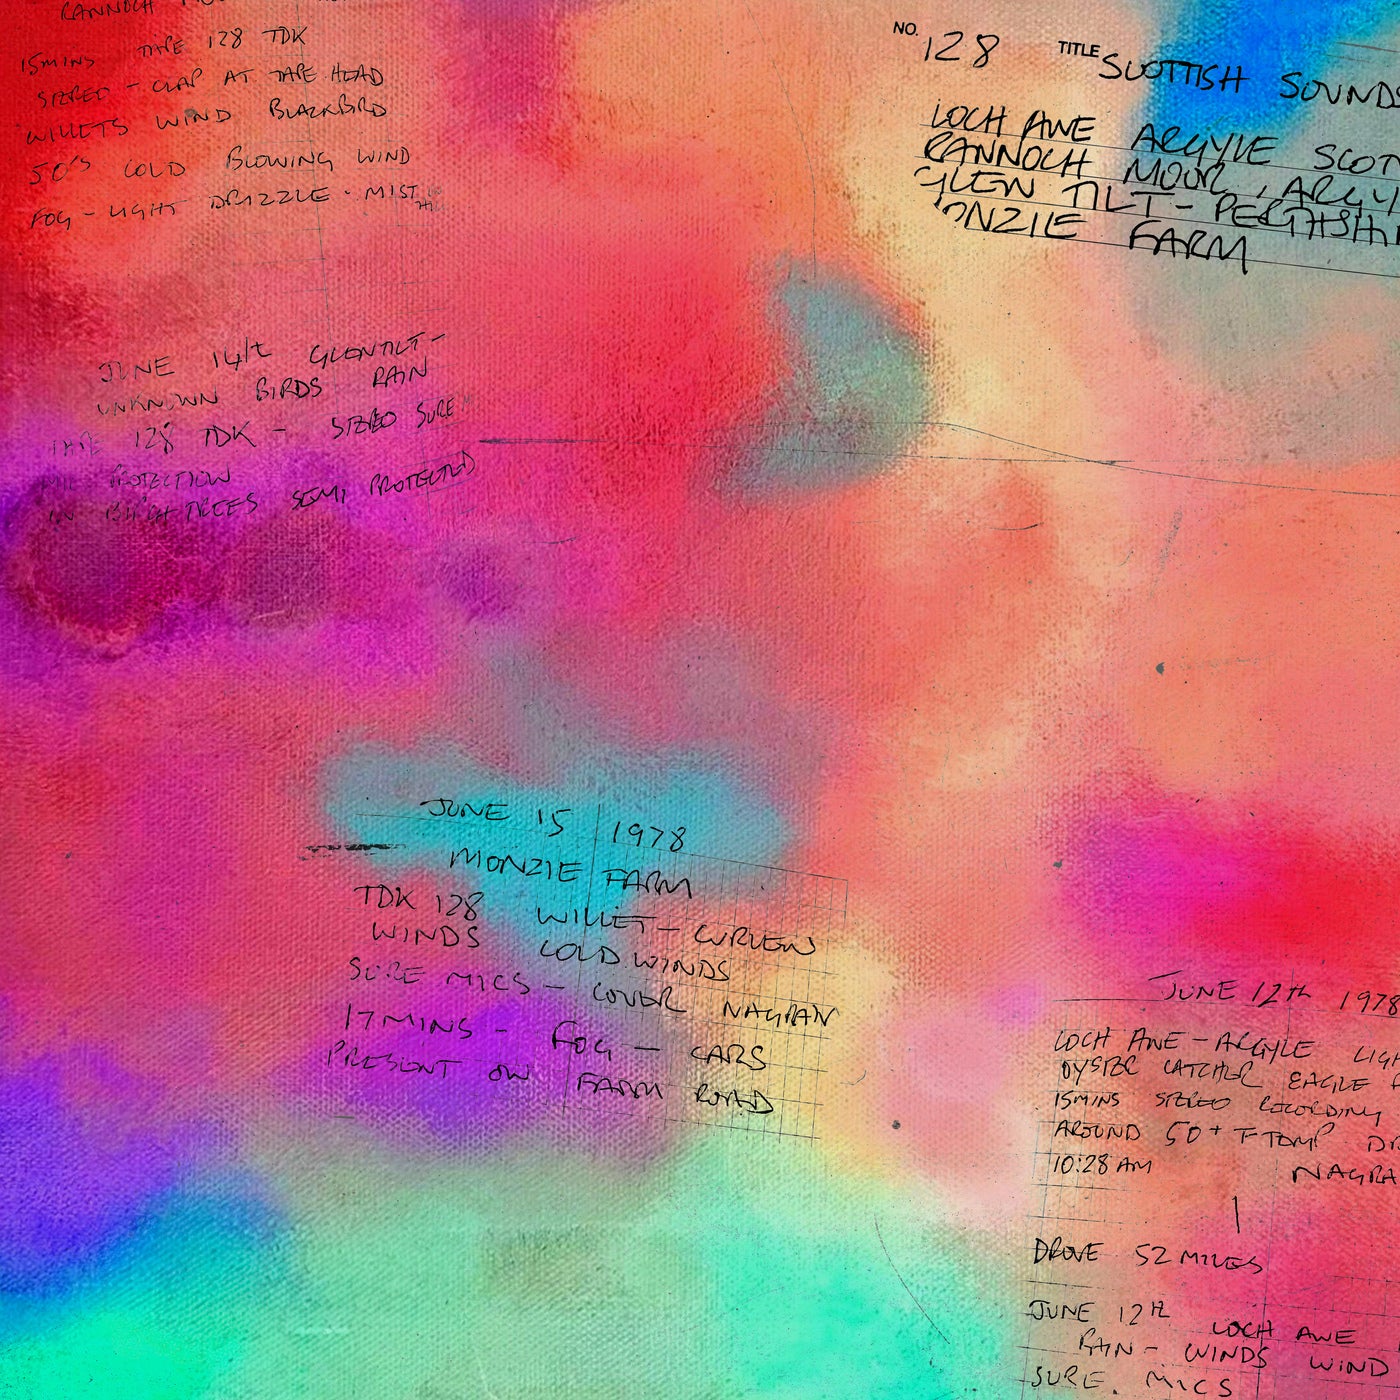 RANNOCH
15MINS TAPE 128 TDK
STEREO - CLAP AT TAPE HEAD
WILLETS WIND BLACKBIRD
50'S COLD BLOWING WIND
FOG - LIGHT DRIZZLE - MIST
NO. 128 TITLE SCOTTISH SOUNDS
LOCH AWE ARGYLE SCOT
RANNOCH MOOR, ARGY
GLEN TILT - PERTHSHI
ONZIE FARM
JUNE 14/t GLENTILT -
UNKNOWN BIRDS RAIN
TAPE 128 TDK - STEREO SURE
PROTECTION
IN BIRCH TREES SEMI PROTECTED
JUNE 15 1978
MONZIE FARM
TDK 128 WILLET - CURLEW
WINDS COLD WINDS
SURE MICS - COVER NAGRAN
17MINS - FOG - CARS
PRESENT ON FARM ROAD
JUNE 12TH 1978
LOCH AWE - ARGYLE LIGH
OYSTER CATCHER EAGLE
15MINS STEREO RECORDING
AROUND 50+ F TEMP DR
10:28 AM NAGRA
DROVE 52 MILES
JUNE 12TH LOCH AWE
RAIN - WINDS WIND
SURE. MICS